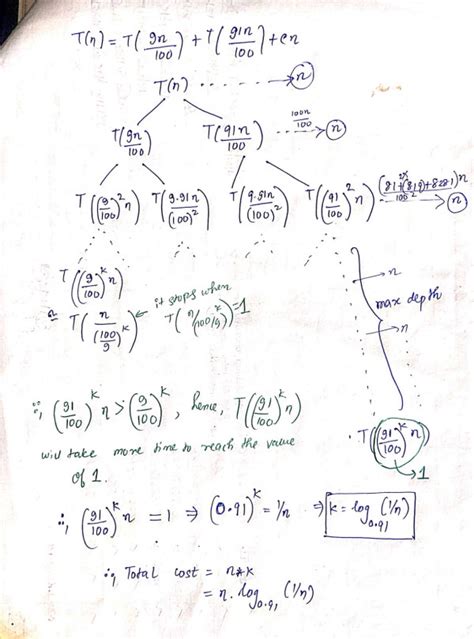 T(n) = T(9n/100) + T(91n/100) + cn
T(n) ------→ (n)
T(9n/100) T(91n/100) ----- 100n/100 → (n)
T((9/100)^2 n) T(9·91n/(100)^2) T(9·91n/(100)^2) T((91/100)^2 n) (81+(819)2×+8281)n/100^2 → (n)
T((9/100)^k n)
T(n/(100/9)^k) ← it stops when T(n/(100/9)^k)=1
→ n
max depth
→ n
T((91/100)^k n)
→ 1
∴, (91/100)^k n > (9/100)^k, hence, T((91/100)^k n)
will take more time to reach the value
of 1.
∴, (91/100)^k n = 1 ⇒ (0.91)^k = 1/n ⇒ k = log_0.91 (1/n)
∴, Total cost = n*k
= n. log_0.91 (1/n)